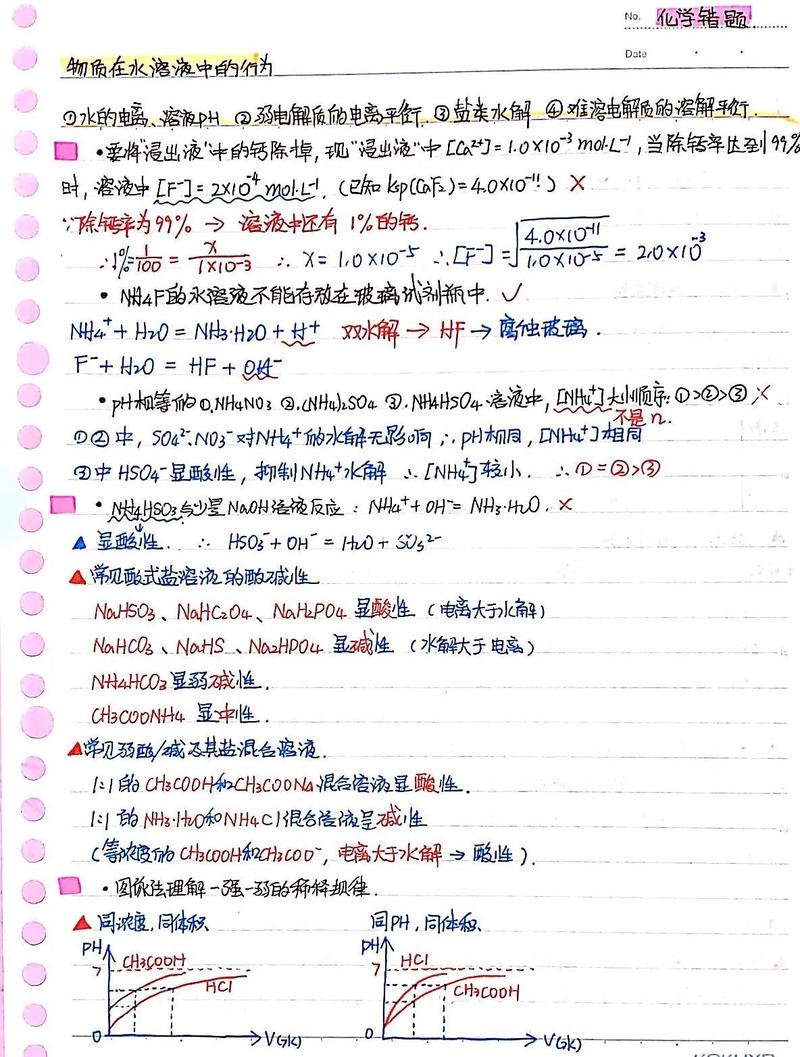 No. 化学错题
Date
物质在水溶液中的行为
①水的电离、溶液pH ②弱电解质的电离平衡.③盐类水解 ④难溶电解质的溶解平衡.
•要将"浸出液"中的钙除掉,现"浸出液"中[Ca²⁺]=1.0×10⁻³mol·L⁻¹,当除钙率达到99%
时,溶液中[F⁻]=2×10⁻⁴mol·L⁻¹.(已知Ksp(CaF₂)=4.0×10⁻¹¹) ×
∵除钙率为99% → 溶液中还有1%的钙.
∴1%=1/100=x/1×10⁻³ ∴x=1.0×10⁻⁵ ∴[F⁻]=√4.0×10⁻¹¹/1.0×10⁻⁵=2.0×10⁻³
•NH₄F的水溶液不能存放在玻璃试剂瓶中.✓
NH₄⁺+H₂O=NH₃·H₂O+H⁺ 双水解→HF→腐蚀玻璃.
F⁻+H₂O=HF+OH⁻
•pH相等的①.NH₄NO₃ ②.(NH₄)₂SO₄ ③.NH₄HSO₄溶液中,[NH₄⁺]大小顺序:①>②>③ ×
不是n.
①②中,SO₄²⁻.NO₃⁻对NH₄⁺的水解无影响∴pH相同,[NH₄⁺]相同
③中HSO₄⁻显酸性,抑制NH₄⁺水解 ∴[NH₄⁺]较小. ∴①=②>③
•NH₄HSO₃与少量NaOH溶液反应:NH₄⁺+OH⁻=NH₃·H₂O. ×
▲显酸性. ∴ HSO₃⁻+OH⁻=H₂O+SO₃²⁻
▲常见酸式盐溶液的酸碱性
NaHSO₃、NaHC₂O₄、NaH₂PO₄显酸性(电离大于水解)
NaHCO₃、NaHS、Na₂HPO₄显碱性(水解大于电离)
NH₄HCO₃显弱碱性.
CH₃COONH₄ 显中性.
▲常见弱酸/碱及其盐混合溶液.
1:1的CH₃COOH和CH₃COONa混合溶液显酸性.
1:1的NH₃·H₂O和NH₄Cl混合溶液呈碱性
(等浓度的CH₃COOH和CH₃COO⁻,电离大于水解→酸性).
•图像法理解一强一弱的稀释规律.
▲同浓度,同体积 同PH,同体积
PH 7 CH₃COOH HCl 0 V(水)
PH 7 HCl CH₃COOH 0 V(水)